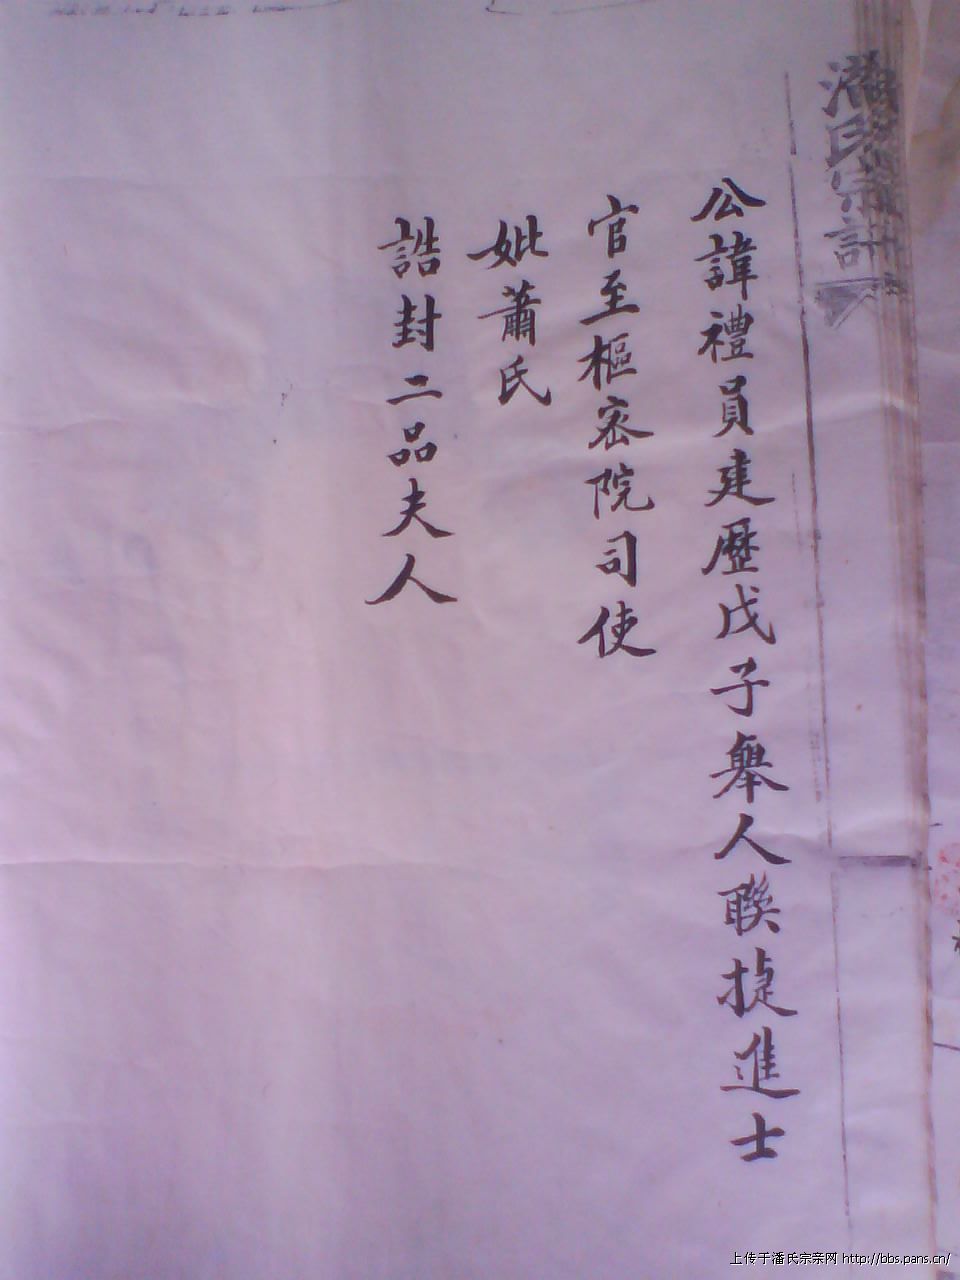 潘氏宗譜
公諱禮員建歷戊子舉人聯捷進士
官至樞密院司使
妣蕭氏
誥封二品夫人
上传于潘氏宗亲网 http://bbs.pans.cn/